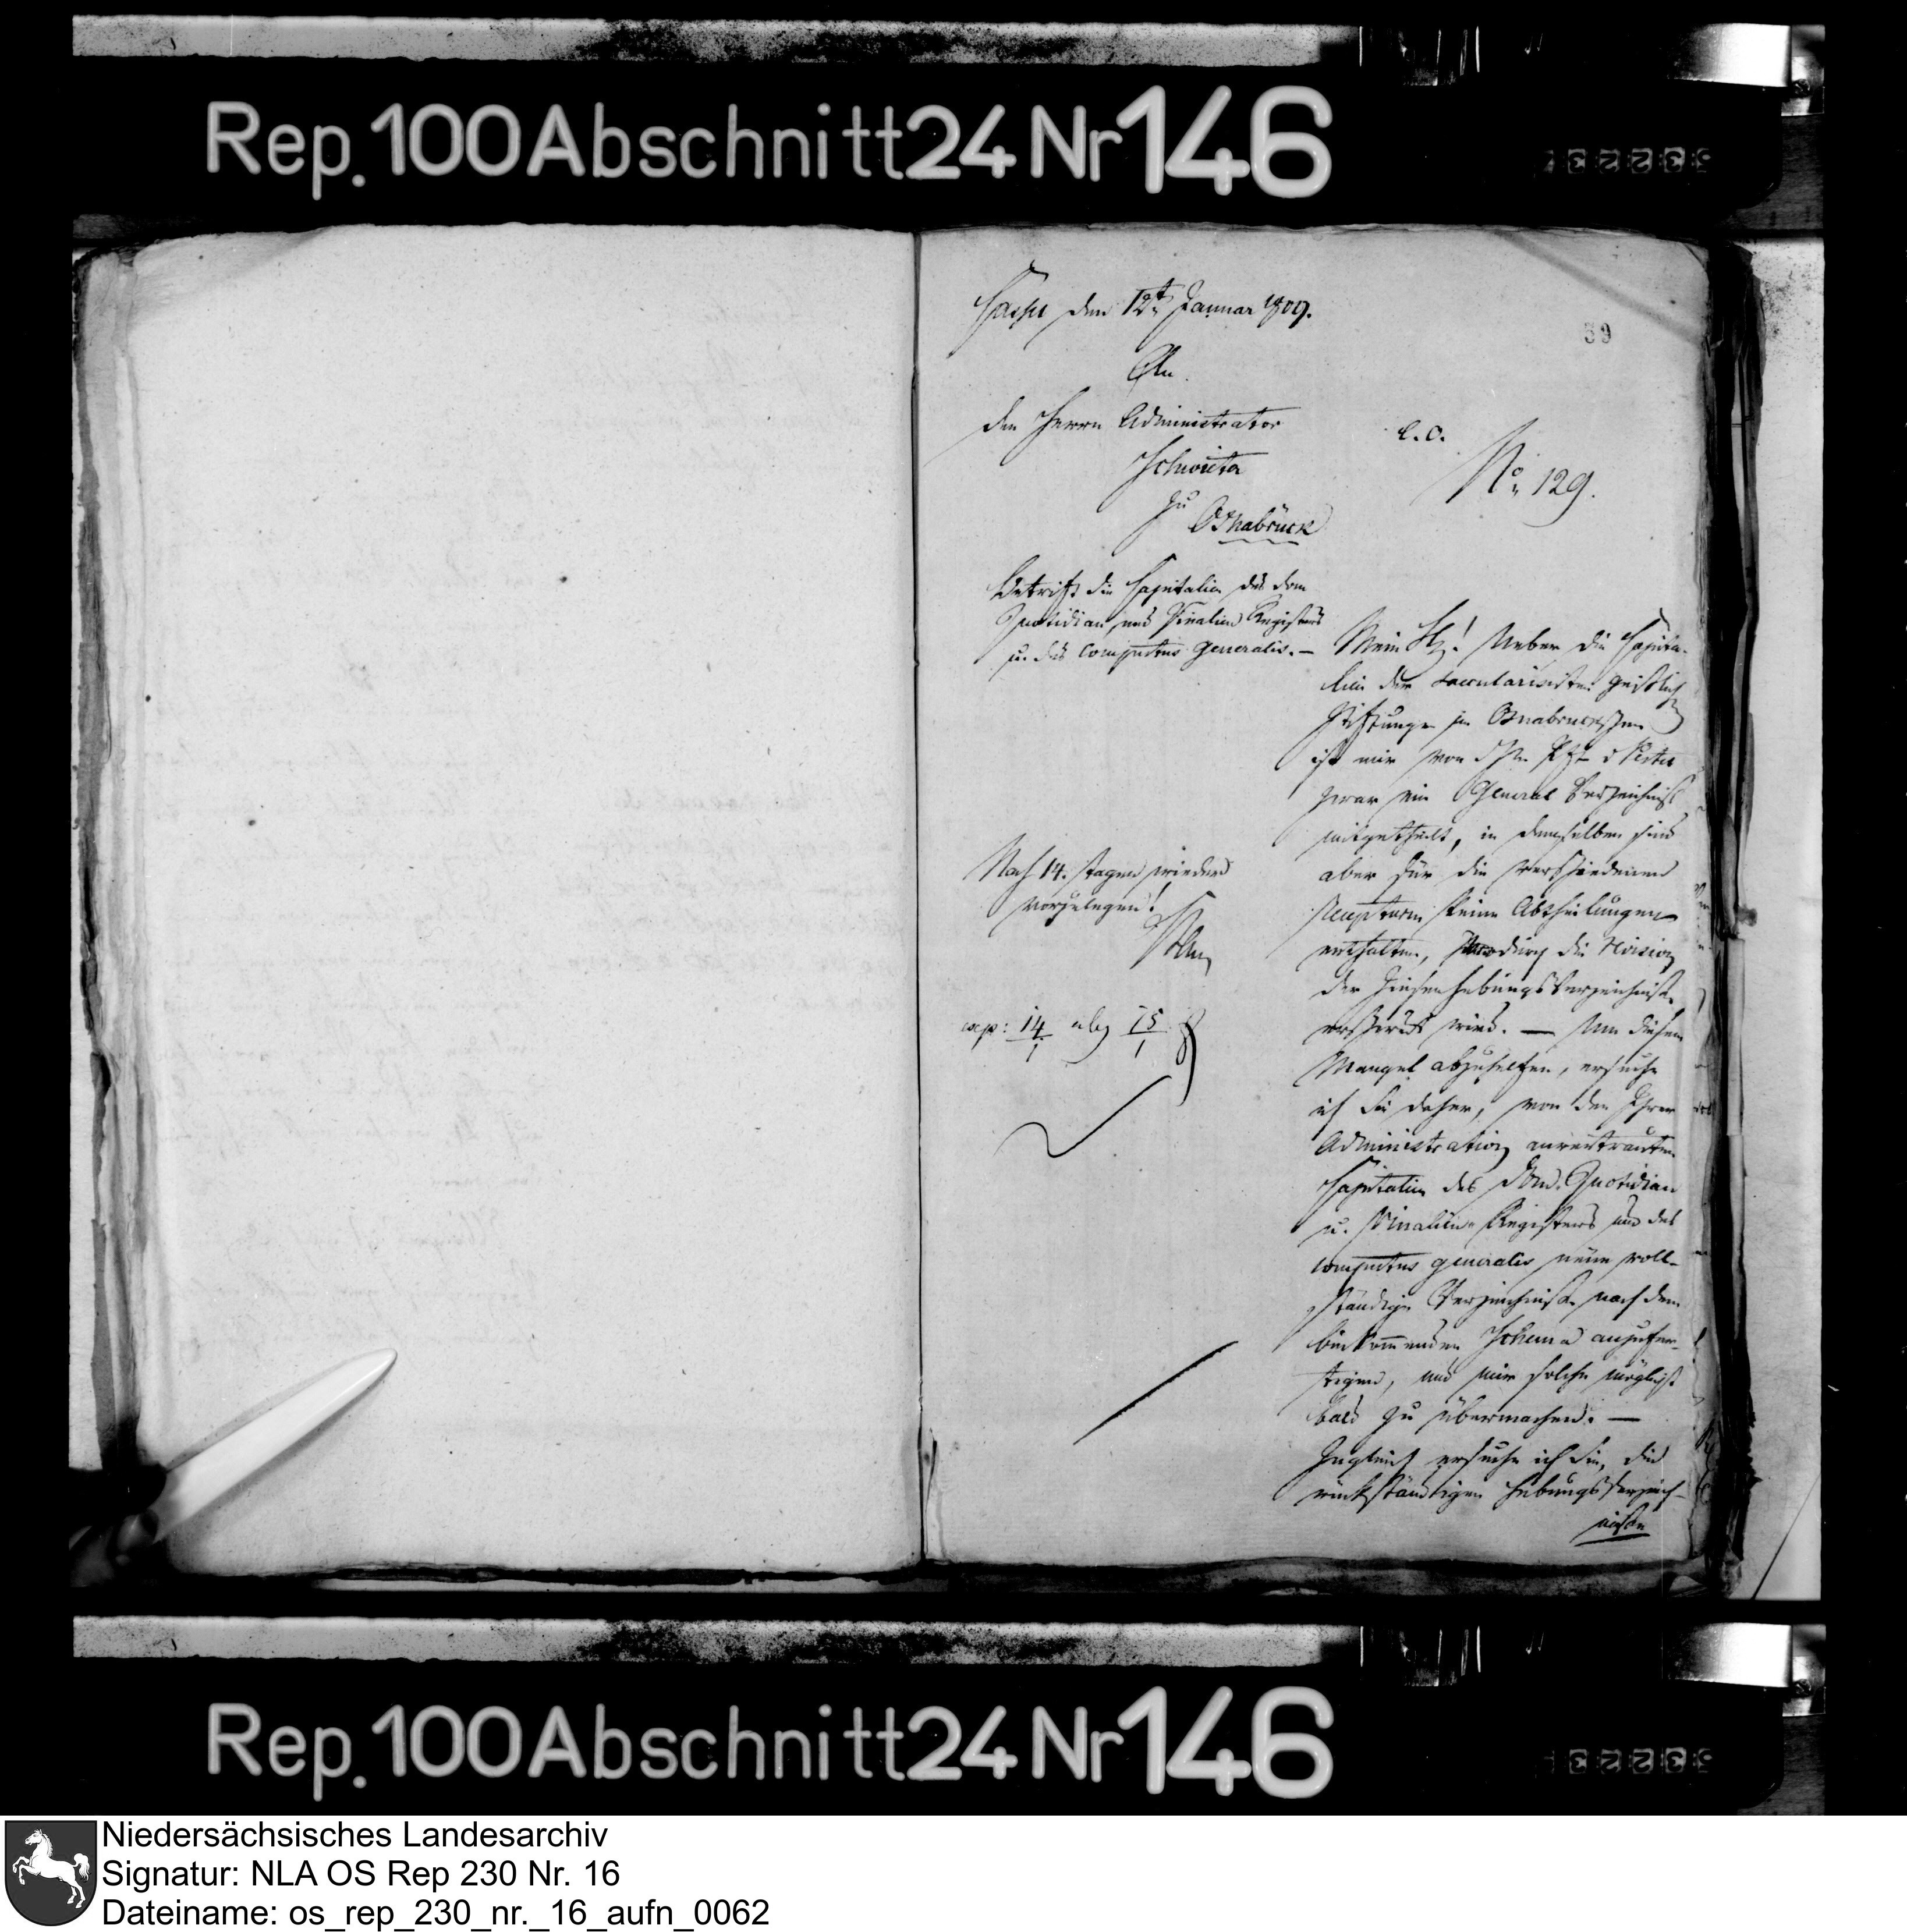 Rep. 100 Abschnitt 24 Nr 146
Cassel den 12t Januar 1809.
39
An
den Herrn Administrator
e. o.
No 129.
zu Osnabrück
Betrift die Capitalien des Dom
Quotidian und Vinalien Registers
u. des Computus generalis. —
Nach 14. Tagen wieder
vorzulegen!
exp: 14/1 abg 15/1
Mein Hr! Ueber die Capita-
lien der saecularisirten geistlichen
Stiftungen im Osnabrückschen
ist mir von
zwar ein General Verzeichniß
mitgetheilt, in demselben sind
aber für die verschiedenen
Recepturen keine Abtheilungen
enthalten, wodurch die Revision
der Zinsenhebungs Verzeichniße
erschwert wird. — Um diesem
Mangel abzuhelfen, ersuche
ich Sie daher, von den Ihrer
Administration anvertrauten
Capitalien des Dom. Quotidian
u. Vinalien Registers und des
computus generalis neue voll-
ständige Verzeichniße nach dem
beikommenden Schema anzufer-
tigen, und mir solche möglichst
bald zu übermachen. —
Zugleich ersuche ich Sie, die
rückständigen Hebungsverzeich-
niße
Rep. 100 Abschnitt 24 Nr 146
Niedersächsisches Landesarchiv
Signatur: NLA OS Rep 230 Nr. 16
Dateiname: os_rep_230_nr._16_aufn_0062